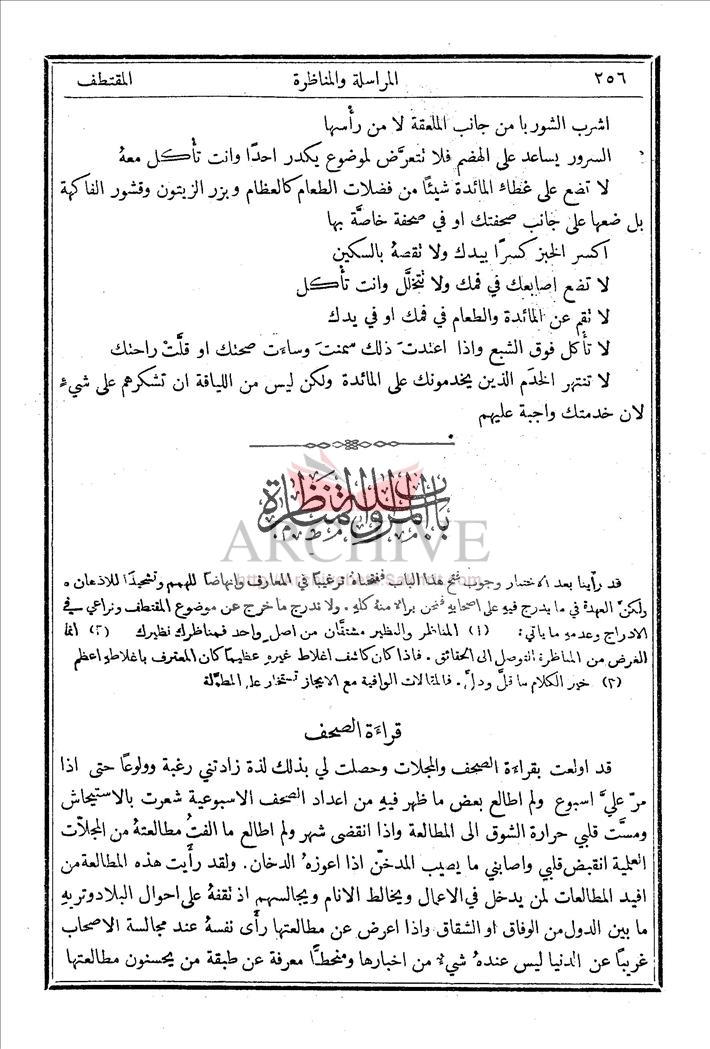 ٢٥٦ المراسلة والمناظرة المقتطف
اشرب الشوربا من جانب الملعقة لا من رأسها
السرور يساعد على الهضم فلا نتعرَّض لموضوع يكدر احدًا وانت تأكل معهُ
لا تضع على غطاء المائدة شيئًا من فضلات الطعام كالعظام وبزر الزيتون وقشور الفاكهة
بل ضعها على جانب صحفتك او في صحفة خاصَّة بها
اكسر الخبز كسرًا بيدك ولا نقصهُ بالسكين
لا تضع اصابعك في فمك ولا نتخلَّل وانت تأكل
لا نقم عن المائدة والطعام في فمك او في يدك
لا تأكل فوق الشبع واذا اعتدتَ ذلك سمنتَ وساءَت صحتك او قلَّت راحتك
لا تنتهر الخدَم الذين يخدمونك على المائدة ولكن ليس من اللياقة ان تشكرهم على شيءٍ
لان خدمتك واجبة عليهم
باب المراسلة والمناظرة
ARCHIVE
قد رأينا بعد الاختبار وجوب فتح هذا الباب ففتحناهُ ترغيبًا في المعارف وانهاضًا للهمم وتشحيذًا للاذهان .
ولكنَّ العهدة في ما يدرج فيهِ على اصحابهِ فنحن براءٌ منهُ كلهِ . ولا ندرج ما خرج عن موضوع المقتطف ونراعي في
الادراج وعدمهِ ما يأتي : (١) المناظر والنظير مشتقَّان من اصل واحد فمناظرك نظيرك (٢) انما
الغرض من المناظرة التوصل الى الحقائق . فاذا كان كاشف اغلاط غيرهِ عظيمًا كان المعترف باغلاطهِ اعظم
(٣) خير الكلام ما قلَّ ودلَّ . فالمقالات الوافية مع الايجاز تستخار على المطوَّلة
قراءة الصحف
قد اولعت بقراءة الصحف والمجلات وحصلت لي بذلك لذة زادتني رغبة وولوعًا حتى اذا
مرّ عليَّ اسبوع ولم اطالع بعض ما ظهر فيهِ من اعداد الصحف الاسبوعية شعرت بالاستيحاش
ومسَّت قلبي حرارة الشوق الى المطالعة واذا انقضى شهر ولم اطالع ما الفتُ مطالعتهُ من المجلاَّت
العلمية انقبض قلبي واصابني ما يصيب المدخن اذا اعوزهُ الدخان. ولقد رأيت هذه المطالعة من
افيد المطالعات لمن يدخل في الاعمال ويخالط الانام ويجالسهم اذ نقفهُ على احوال البلاد وتريهِ
ما بين الدول من الوفاق او الشقاق واذا اعرض عن مطالعتها رأى نفسهُ عند مجالسة الاصحاب
غريبًا عن الدنيا ليس عندهُ شيءٌ من اخبارها ومنحطًّا معرفة عن طبقة من يحسنون مطالعتها